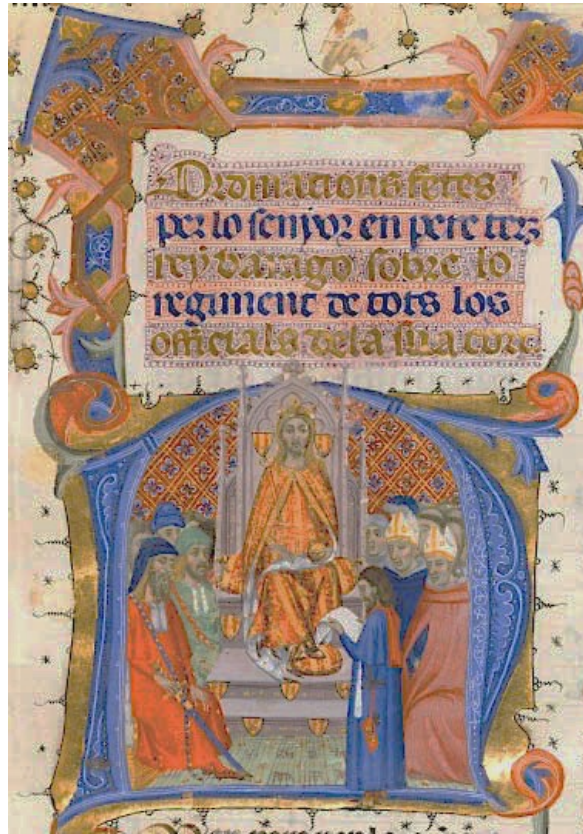 Ordinacions fetes
per lo senyor en pere terz
rey darago sobre lo
regiment de tots los
officials dela sua cort